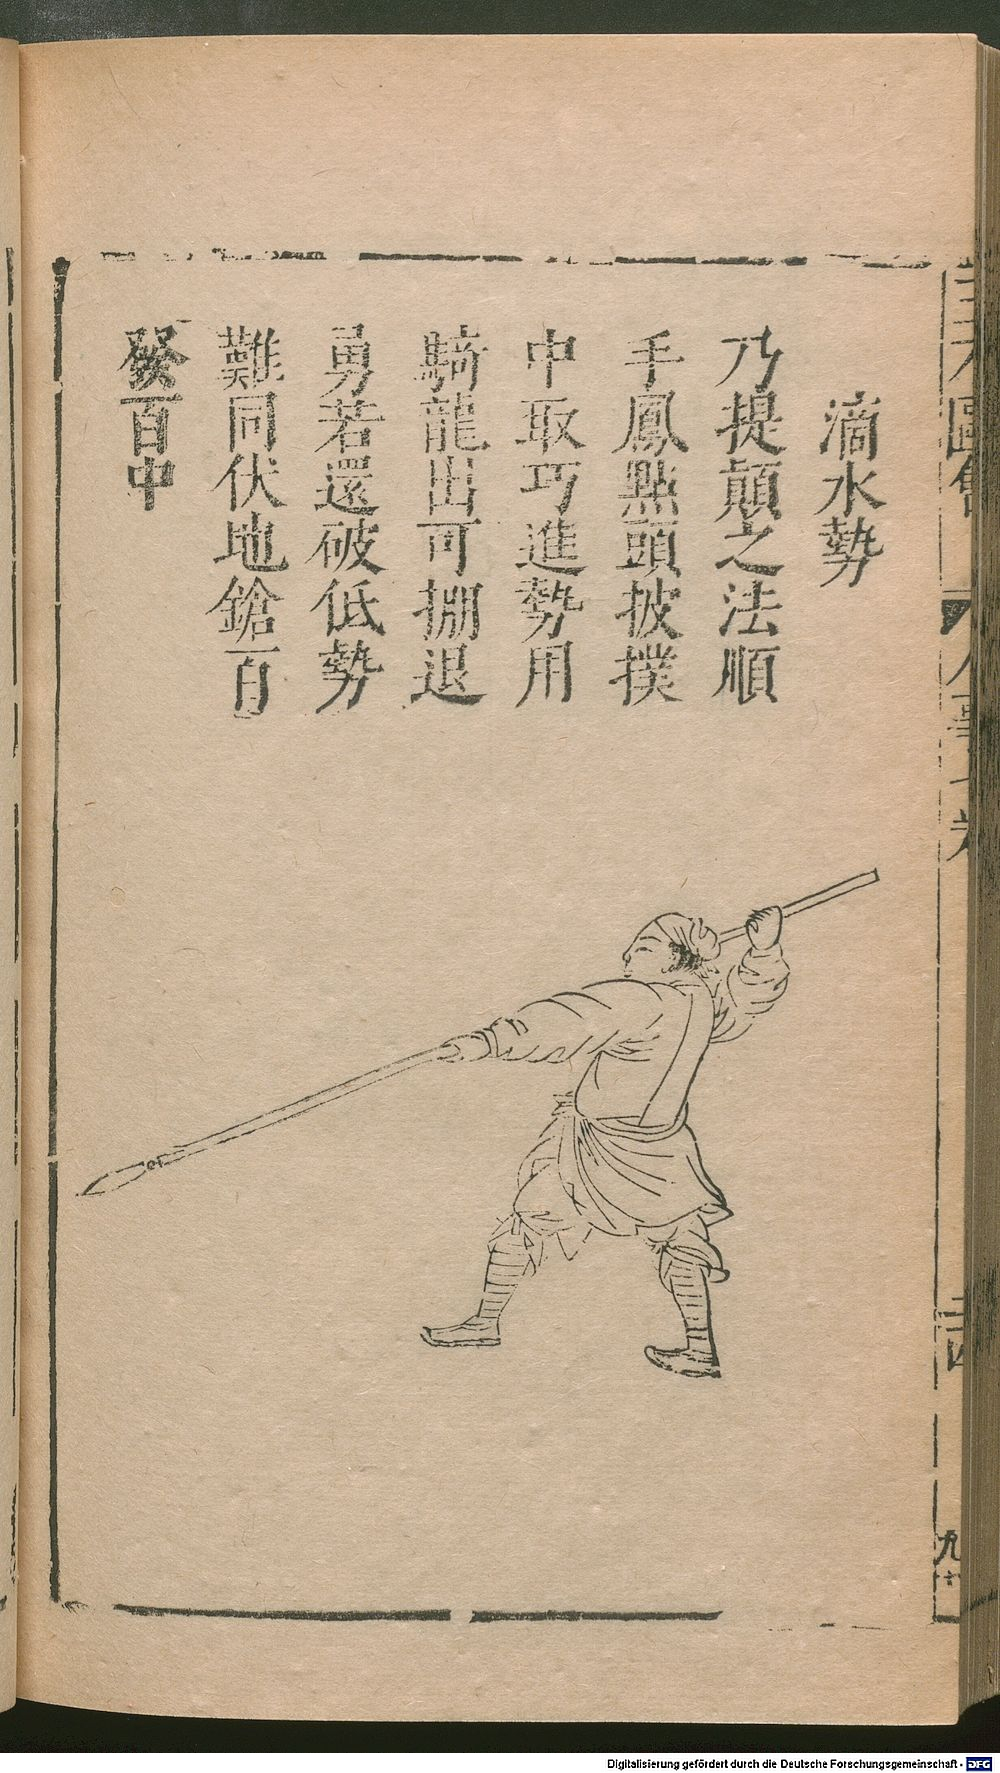 滴水勢
乃提顛之法順
手鳳點頭披撲
中取巧進勢用
騎龍出可掤退
勇若還破低勢
難同伏地鎗百
發百中
Digitalisierung gefördert durch die Deutsche Forschungsgemeinschaft - DFG